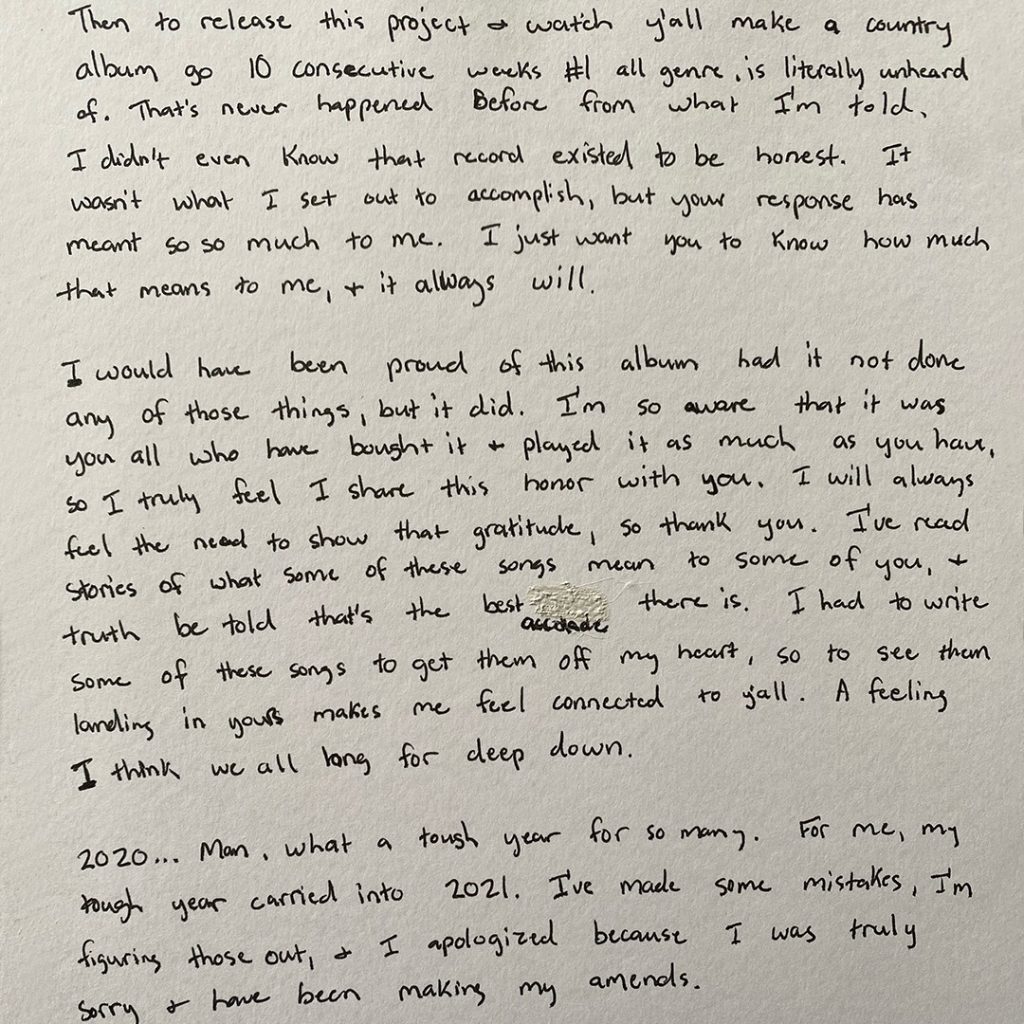 Then to release this project + watch y'all make a country
album go 10 consecutive weeks #1 all genre, is literally unheard
of. That's never happened Before from what I'm told.
I didn't even Know that record existed to be honest. It
wasn't what I set out to accomplish, but your response has
meant so so much to me. I just want you to Know how much
that means to me, + it always will.
I would have been proud of this album had it not done
any of those things, but it did. I'm so aware that it was
you all who have bought it + played it as much as you have,
so I truly feel I share this honor with you. I will always
feel the need to show that gratitude, so thank you. I've read
stories of what some of these songs mean to some of you, +
truth be told that's the best accolade there is. I had to write
some of these songs to get them off my heart, so to see them
landing in yours makes me feel connected to y'all. A feeling
I think we all long for deep down.
2020... Man, what a tough year for so many. For me, my
tough year carried into 2021. I've made some mistakes, I'm
figuring those out, + I apologized because I was truly
sorry + have been making my amends.